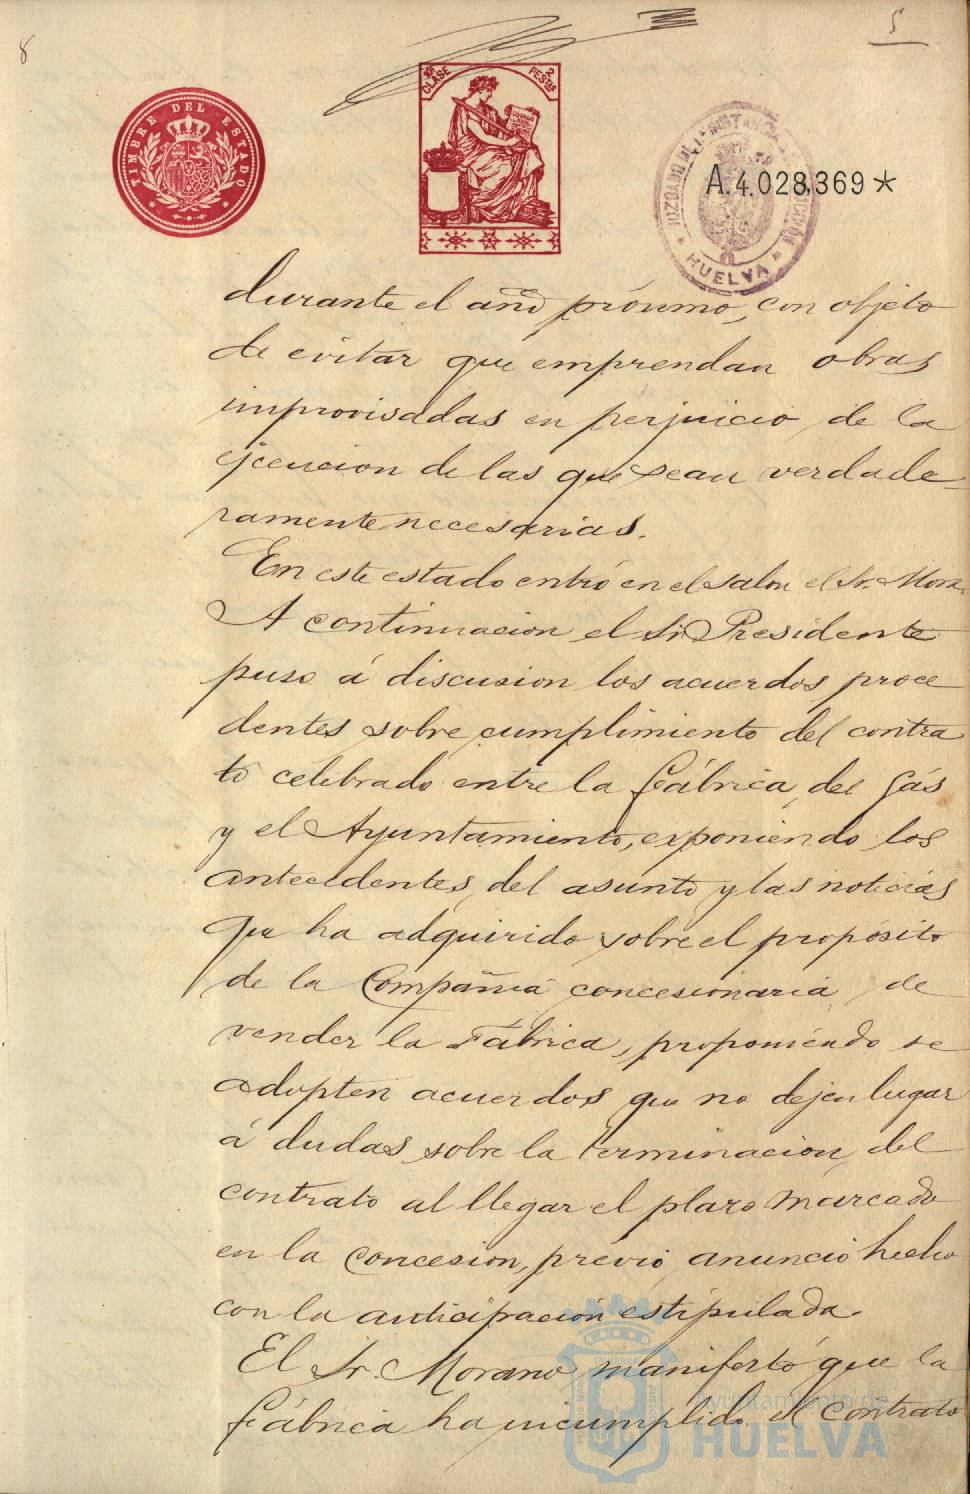 8
5
TIMBRE DEL ESTADO
10ª CLASE
2 PESETAS
A.4.028,369*
HUELVA
durante el año próximo, con objeto
de evitar que emprendan obras
improvisadas en perjuicio de la
ejecucion de las que sean verdade-
ramente necesarias.
En este estado entró en el salon el Sr. Mora.
A continuacion el Sr. Presidente
puso á discusion los acuerdos proce
dentes sobre cumplimiento del contra
to celebrado entre la Fábrica del Gás
y el Ayuntamiento, exponiendo los
antecedentes del asunto y las noticias
que ha adquirido sobre el propósito
de la Compañia concesionaria de
vender la Fábrica, proponiendo se
adopten acuerdos que no dejen lugar
á dudas sobre la terminacion del
contrato al llegar el plazo marcado
en la concesion, previo anuncio hecho
con la anticipacion estipulada.
El Sr. Morano manifestó que la
Fábrica ha incumplido el contrato
Ayuntamiento de
HUELVA